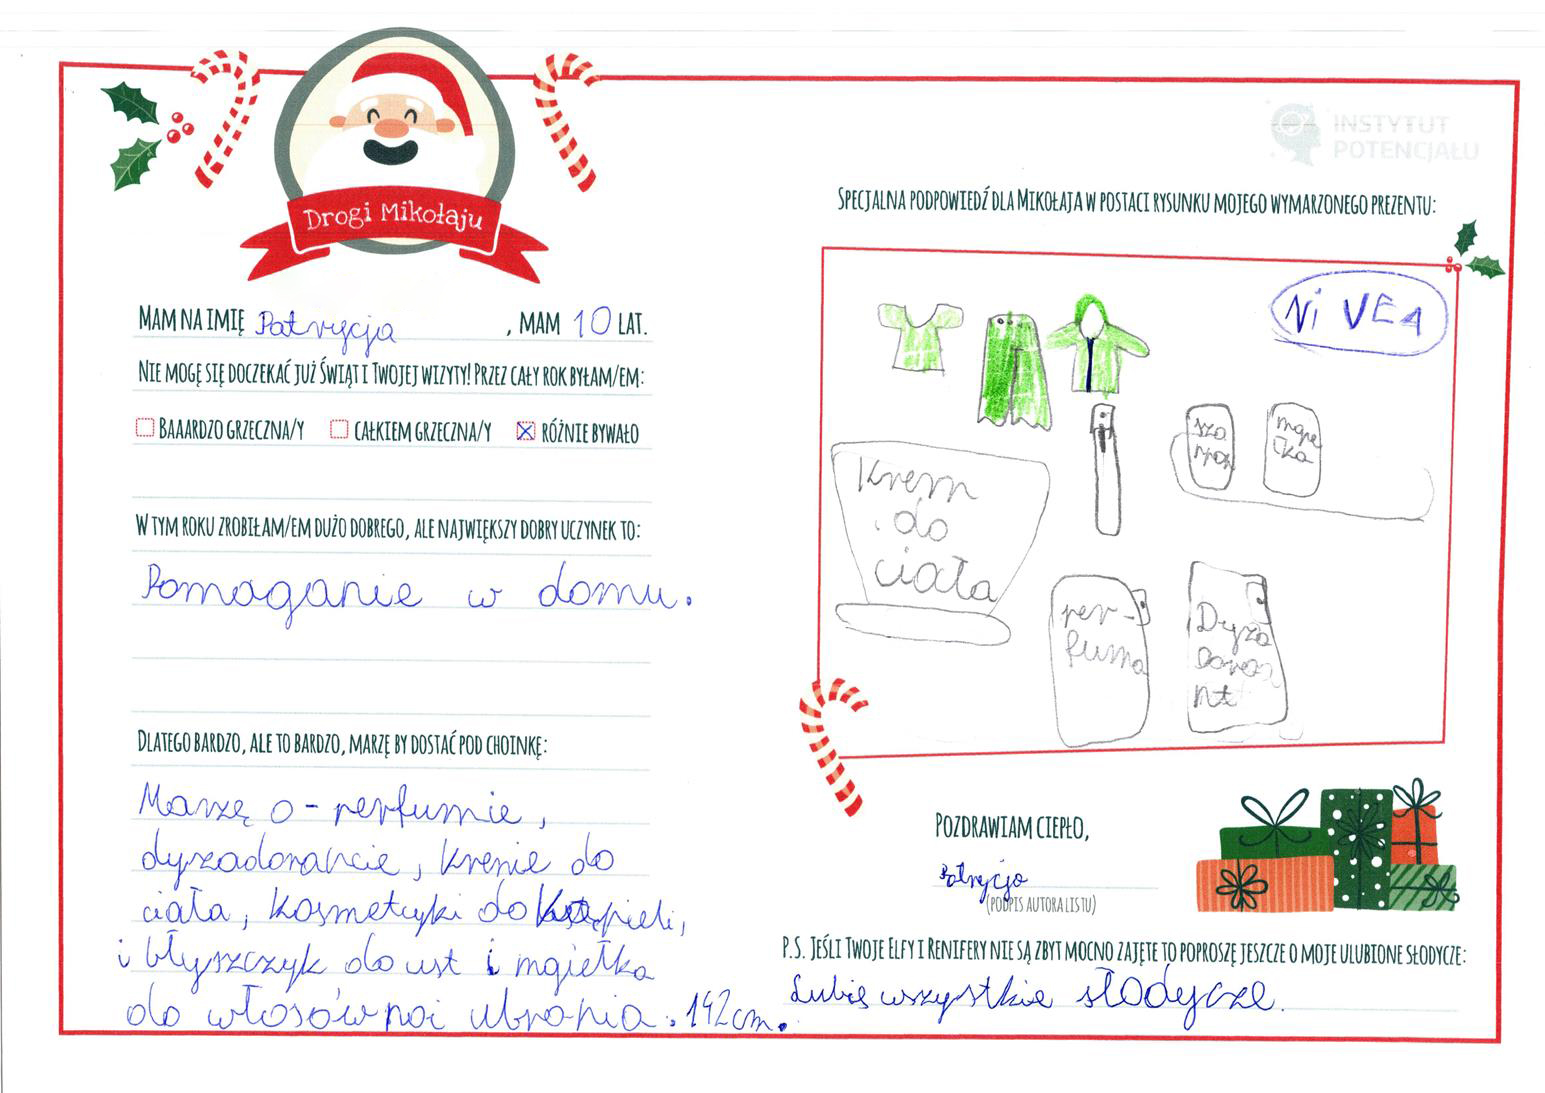 Drogi Mikołaju
MAM NA IMIĘ Patrycja, MAM 10 LAT.
NIE MOGĘ SIĘ DOCZEKAĆ JUŻ ŚWIĄT I TWOJEJ WIZYTY! PRZEZ CAŁY ROK BYŁAM/EM:
BAAARDZO GRZECZNA/Y CAŁKIEM GRZECZNA/Y RÓŻNIE BYWAŁO
W TYM ROKU ZROBIŁAM/EM DUŻO DOBREGO, ALE NAJWIĘKSZY DOBRY UCZYNEK TO:
Pomaganie w domu.
DLATEGO BARDZO, ALE TO BARDZO, MARZĘ BY DOSTAĆ POD CHOINKĘ:
Marzę o - perfumie,
dyzadorancie, kremie do
ciała, kosmetyki do kąpieli,
i błyszczyk do ust i mgiełka
do włosów noi ubrania. 142cm.
INSTYTUT
POTENCJAŁU
SPECJALNA PODPOWIEDŹ DLA MIKOŁAJA W POSTACI RYSUNKU MOJEGO WYMARZONEGO PREZENTU:
NiVEA
Krem
do
ciała
sza
mpon
mgie
łka
per-
fuma
Dyza
doran
nt
POZDRAWIAM CIEPŁO,
Patrycja
(PODPIS AUTORA LISTU)
P.S. JEŚLI TWOJE ELFY I RENIFERY NIE SĄ ZBYT MOCNO ZAJĘTE TO POPROSZĘ JESZCZE O MOJE ULUBIONE SŁODYCZE:
Lubię wszystkie słodycze.